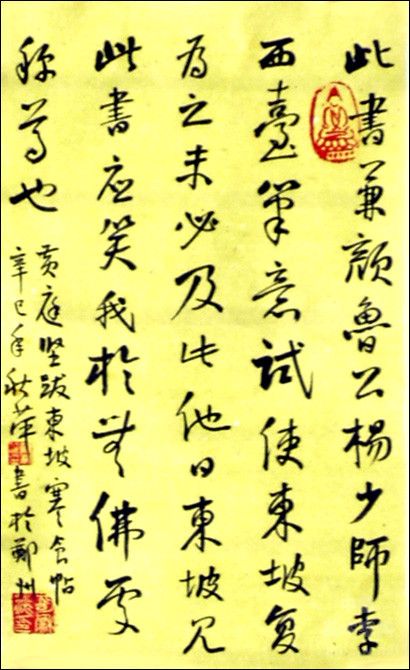 此書兼顔魯公楊少師李
西臺筆意試使東坡复
为之未必及此他日東坡见
此書应笑我於无佛处
称尊也
黄庭坚跋東坡寒食帖
辛巳年秋書於鄭州